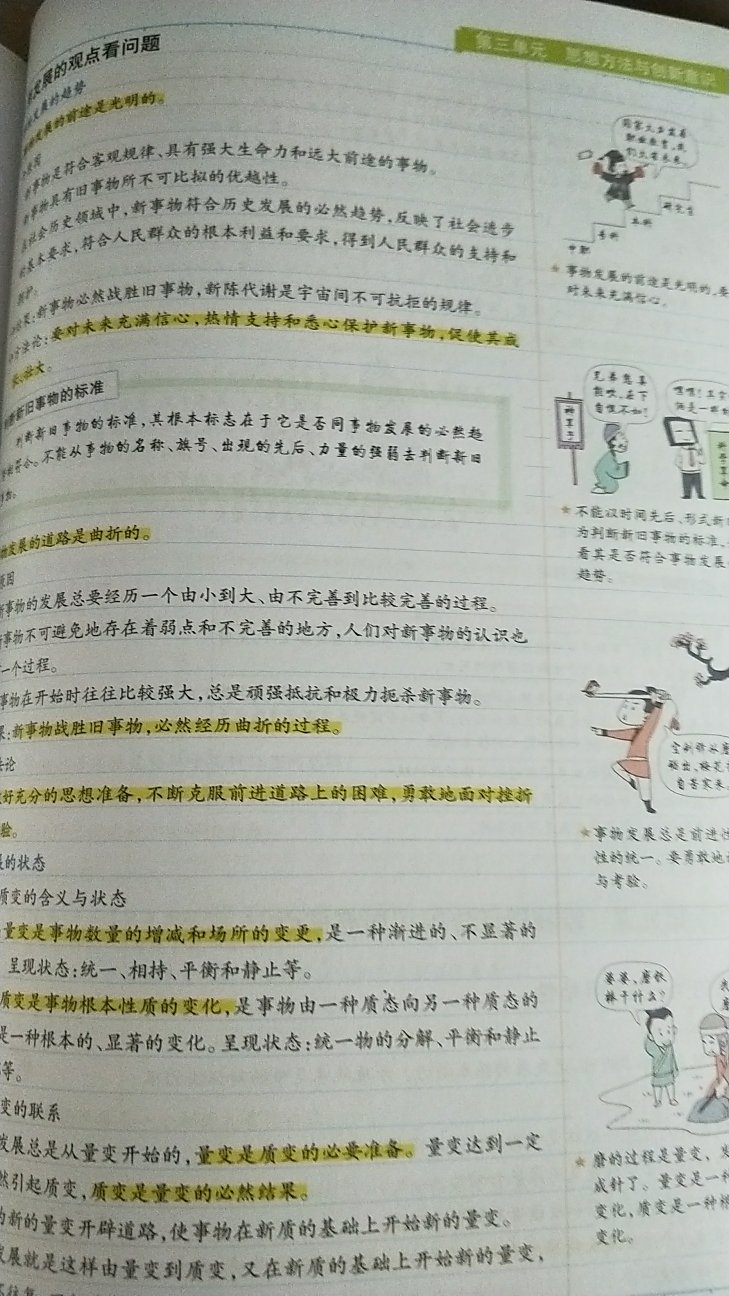 第三单元 思想方法与创新意识
发展的观点看问题
发展的趋势
发展的前途是光明的。
原因
新事物是符合客观规律、具有强大生命力和远大前途的事物。
新事物具有旧事物所不可比拟的优越性。
在社会历史领域中,新事物符合历史发展的必然趋势,反映了社会进步
的基本要求,符合人民群众的根本利益和要求,得到人民群众的支持和
拥护。
结果:新事物必然战胜旧事物,新陈代谢是宇宙间不可抗拒的规律。
方法论:要对未来充满信心,热情支持和悉心保护新事物,促使其成
长、壮大。
判断新旧事物的标准
判断新旧事物的标准,其根本标志在于它是否同事物发展的必然趋
势相符合。不能从事物的名称、旗号、出现的先后、力量的强弱去判断新旧
事物。
物发展的道路是曲折的。
原因
新事物的发展总要经历一个由小到大、由不完善到比较完善的过程。
新事物不可避免地存在着弱点和不完善的地方,人们对新事物的认识也
一个过程。
事物在开始时往往比较强大,总是顽强抵抗和极力扼杀新事物。
果:新事物战胜旧事物,必然经历曲折的过程。
法论
好充分的思想准备,不断克服前进道路上的困难,勇敢地面对挫折
验。
展的状态
质变的含义与状态
量变是事物数量的增减和场所的变更,是一种渐进的、不显著的
呈现状态:统一、相持、平衡和静止等。
质变是事物根本性质的变化,是事物由一种质态向另一种质态的
是一种根本的、显著的变化。呈现状态:统一物的分解、平衡和静止
等。
变的联系
发展总是从量变开始的,量变是质变的必要准备。量变达到一定
然引起质变,质变是量变的必然结果。
为新的量变开辟道路,使事物在新质的基础上开始新的量变。
发展就是这样由量变到质变,又在新质的基础上开始新的量变,
国家大力发展
职业教育,我
们大有未来。
研究生
本科
专科
中职
★事物发展的前途是光明的,要
对未来充满信心。
兄弟您真
能吹,在下
自愧不如!
★不能以时间先后、形式新
为判断新旧事物的标准,
看其是否符合事物发展
趋势。
宝剑锋从磨
砺出,梅花
自苦寒来。
★事物发展总是前进性
性的统一。要勇敢地
与考验。
婆婆,磨铁
棒干什么?
★磨的过程是量变,发
成针了。量变是一种
变化,质变是一种根
变化。